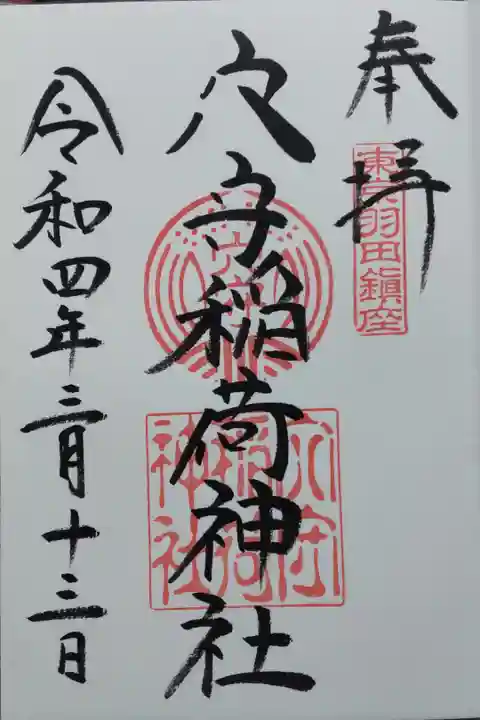 奉拝
東京羽田鎮座
穴守稲荷神社
穴守
稲荷
神社
令和四年三月十三日